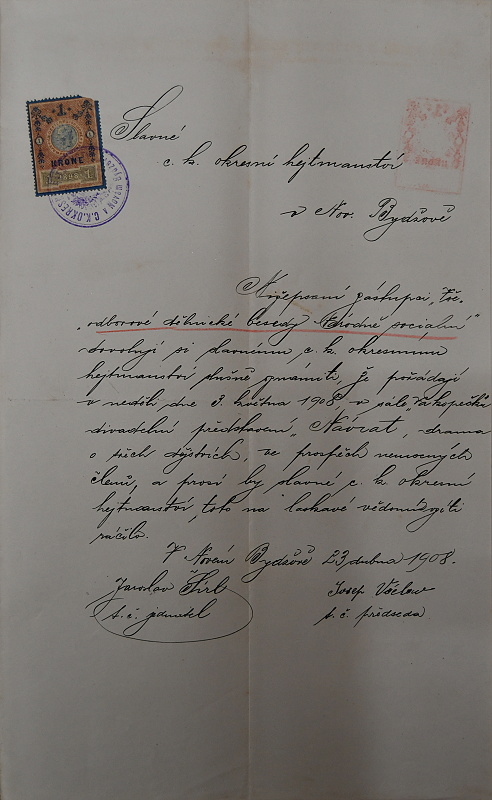 1
KRONE
1898
C.K.OKRES
Slavné
c. k. okresní hejtmanství
v Nov. Bydžově
Nížepsaní zástupci,
„odborové dělnické besedy
dovolují si slavnému c. k. okresnímu
hejtmanství slušně oznámiti, že pořádají
v neděli dne 3. května 1908 v sále
divadelní představení „Návrat", drama
o třech dějstvích, ve prospěch nemocných
členů, a prosí by slavné c. k. okresní
hejtmanství toto na laskavé vědomí vzíti
ráčilo.
V Novém Bydžově 23 dubna 1908.
Jaroslav
t. č. jednatel
Josef
t. č. předseda